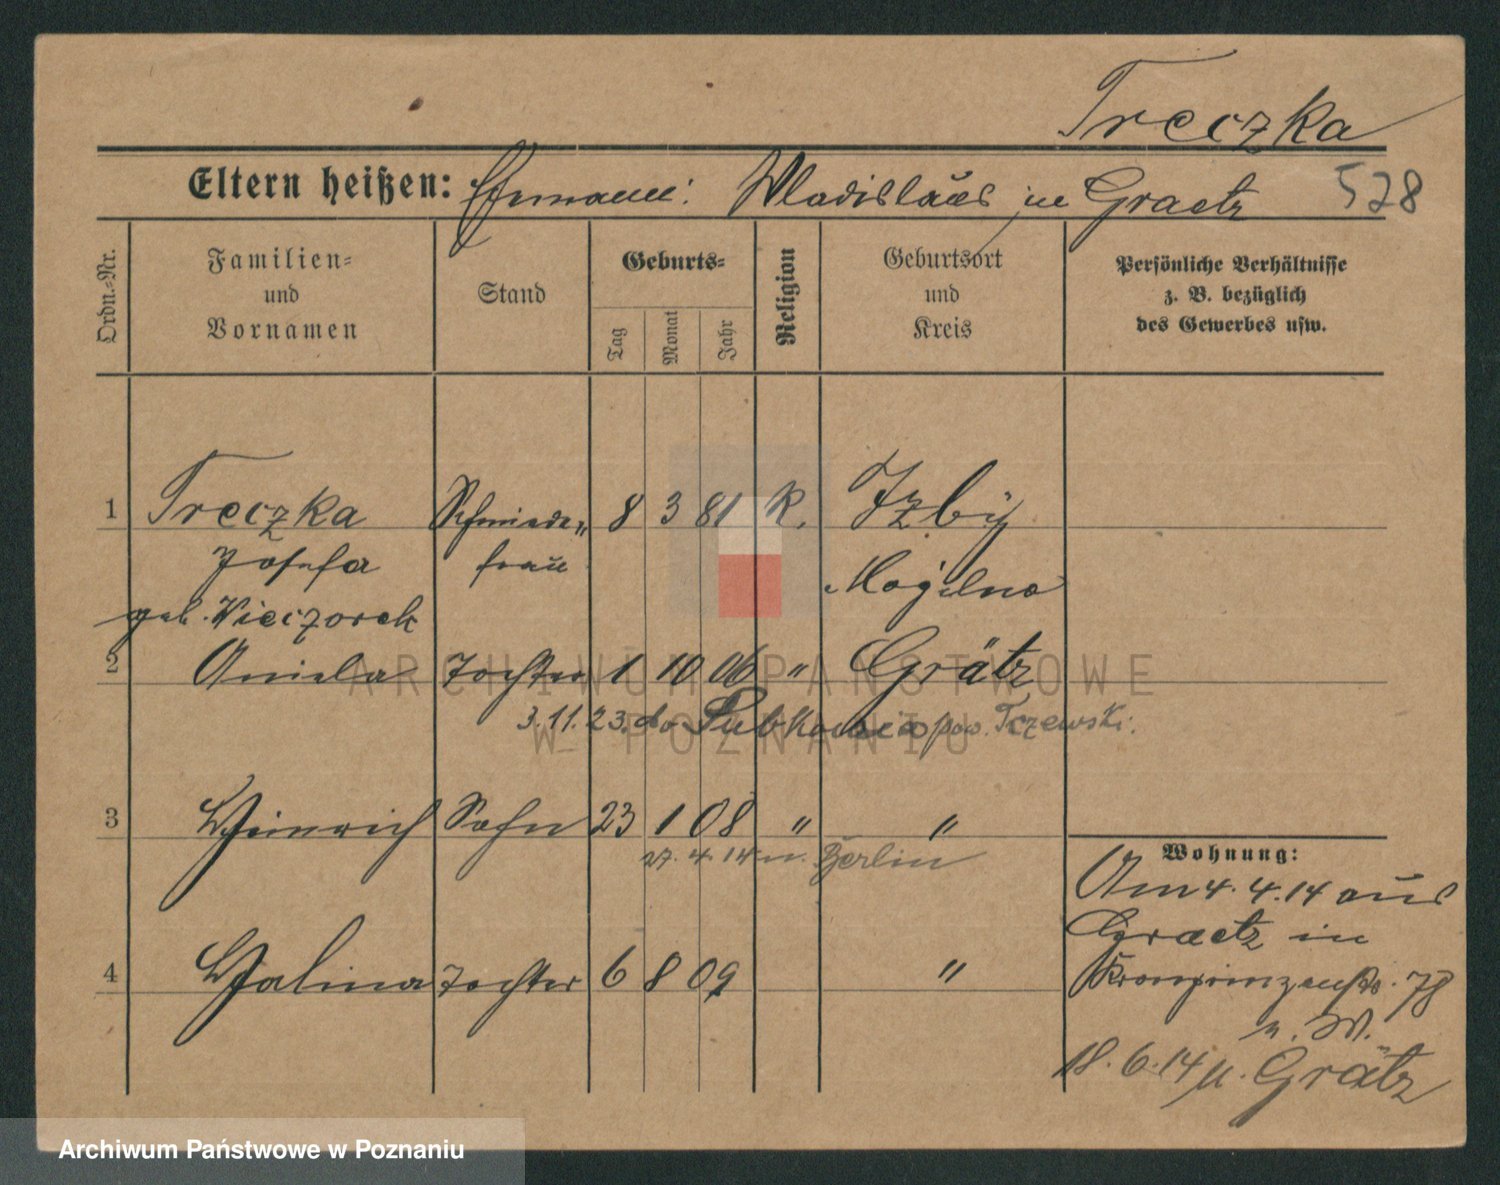 Treczka
Eltern heißen: Ehemann: Wladislaus in Graetz 528
Ordn.-Nr.
Familien-
und
Vornamen
Stand
Geburts-
Tag
Monat
Jahr
Religion
Geburtsort
und
Kreis
Persönliche Verhältnisse
z. B. bezüglich
des Gewerbes usw.
1 Treczka Schmiede- 8 3 81 K. Izby
Josefa frau Mogilno
geb. Wieczorek
2 Aniela Tochter 1 10 06 " Grätz
3.11.23. do Subkowia pow. Tczewski.
3 Heinrich Sohn 23 1 08 " "
27. 4. 14 n. Berlin
4 Halina Tochter 6 8 09 "
Wohnung:
Am 4. 4. 14 aus
Graetz in
Kronprinzenstr. 78
n. W.
18. 6. 14 n. Grätz
ARCHIWUM PAŃSTWOWE
W POZNANIU
Archiwum Państwowe w Poznaniu